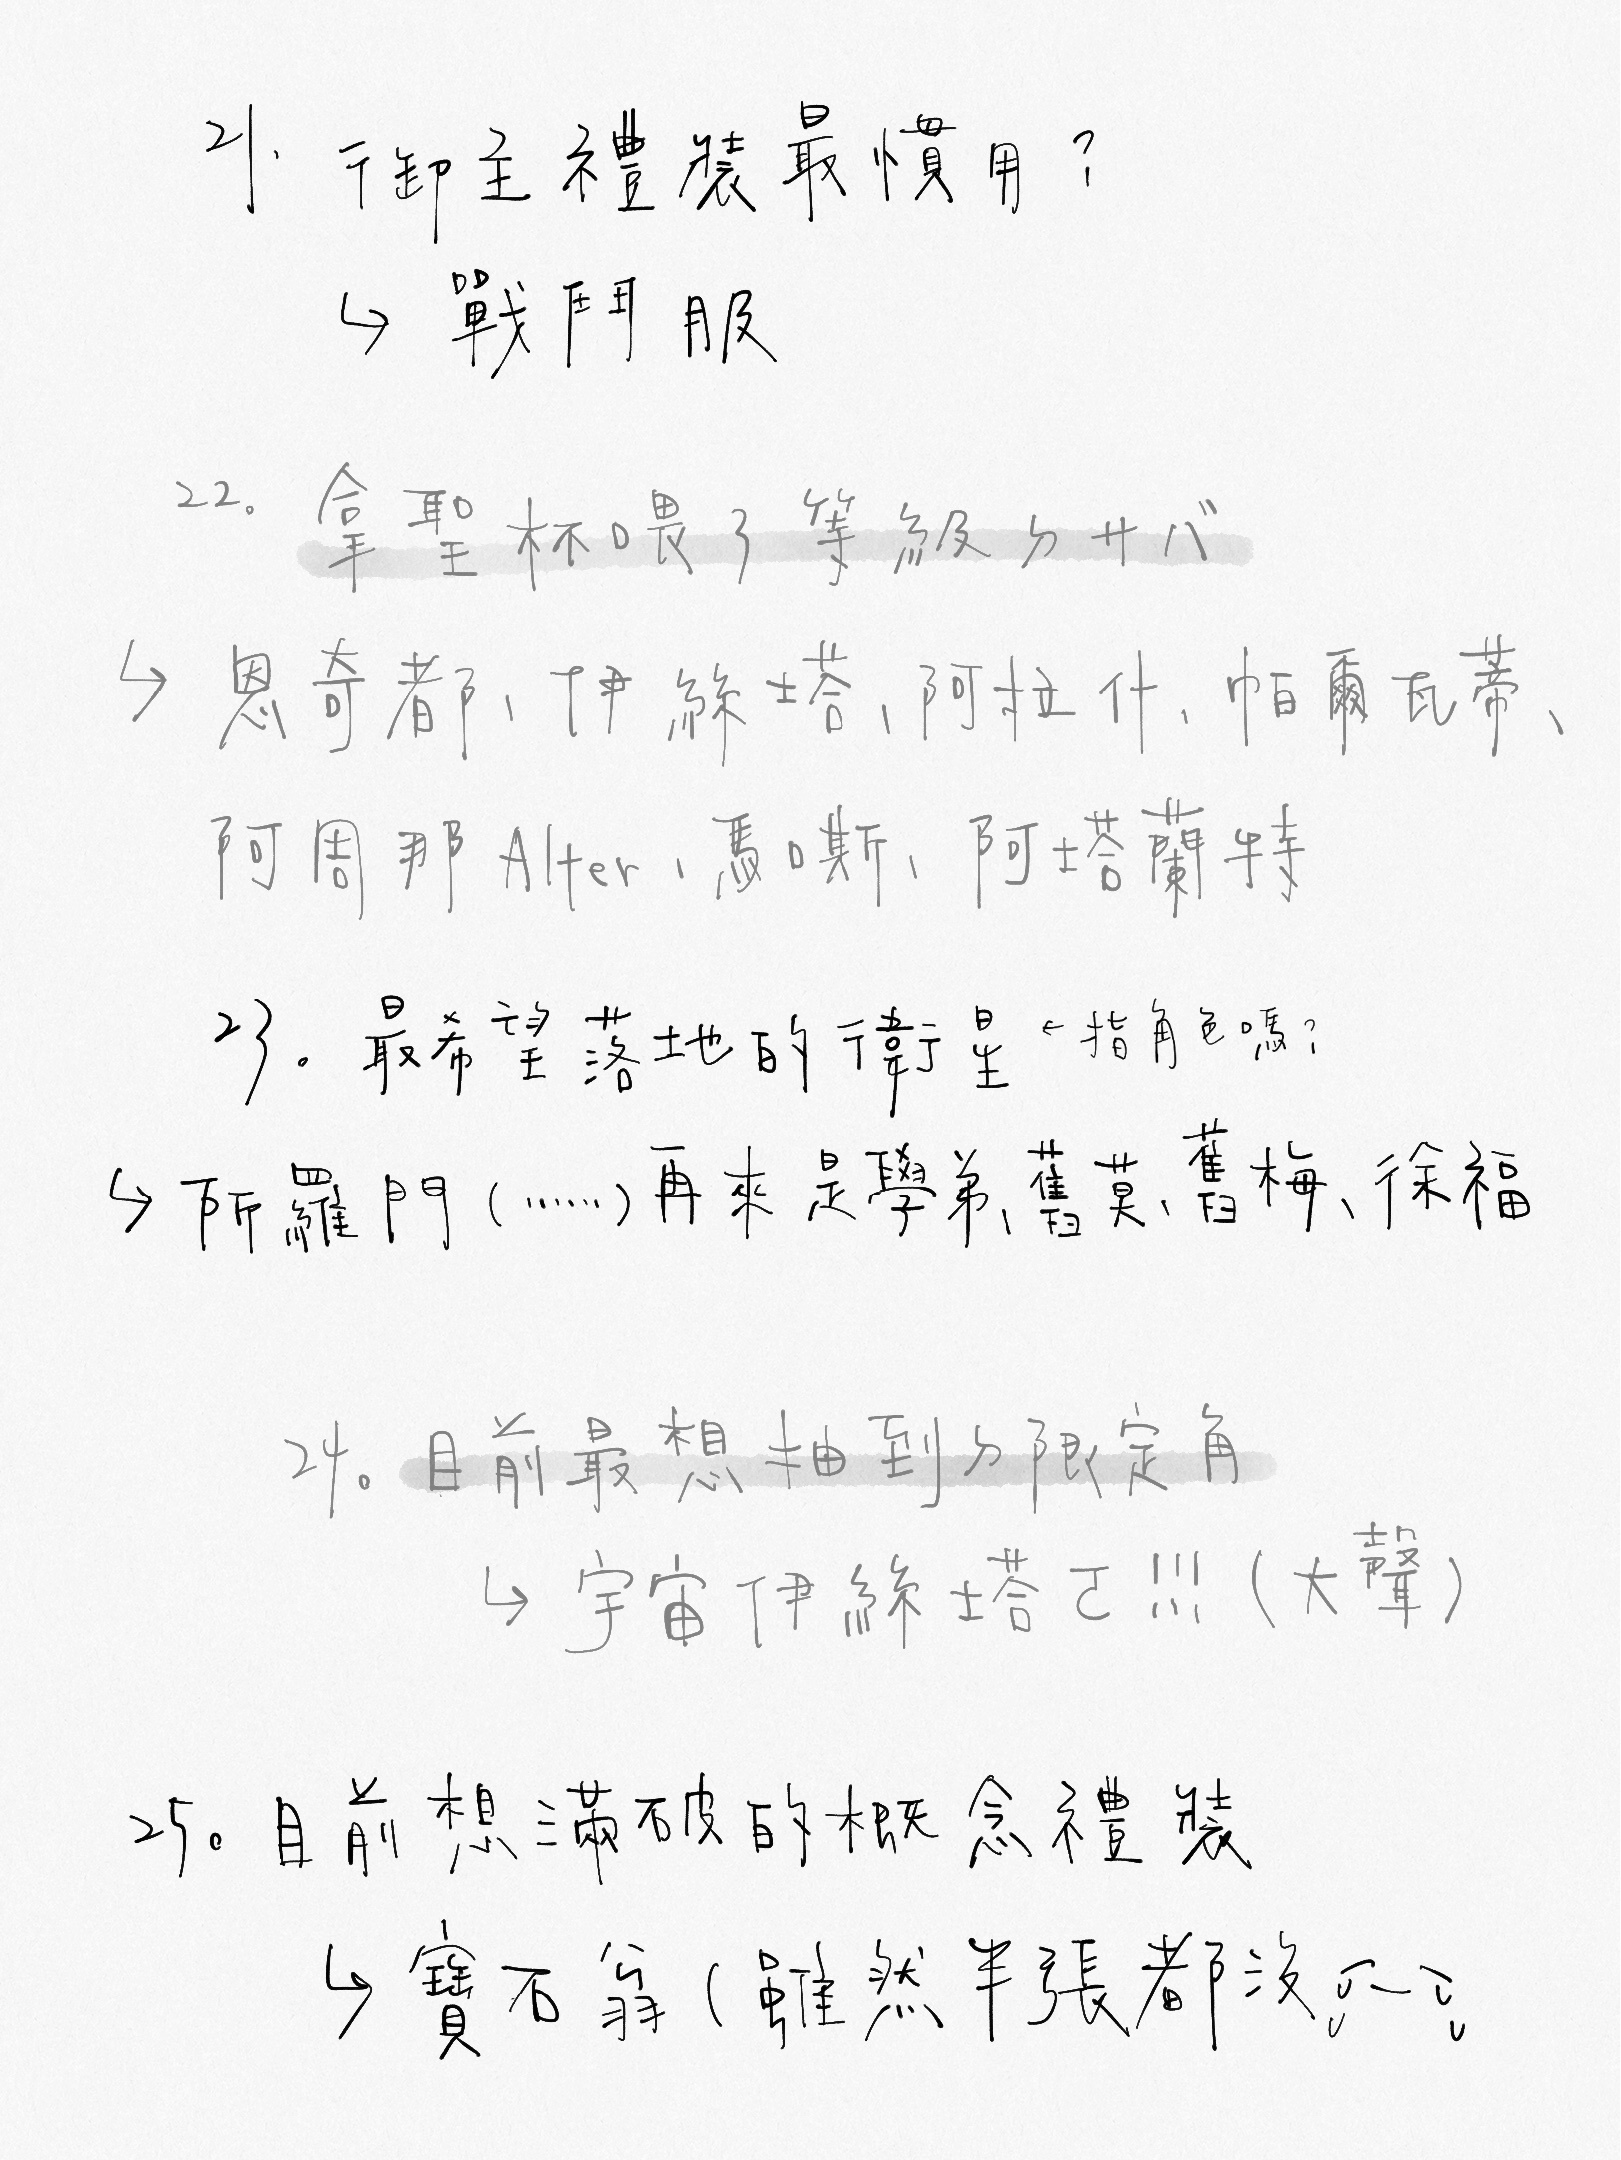 21. 御主禮裝最慣用？
↳ 戰鬥服
22. 拿聖杯喂了等級ㄉ廿八
↳ 恩奇都、伊絲塔、阿拉什、帕爾瓦蒂、
阿周那Alter、馬嘶、阿塔蘭特
23. 最希望落地的衛星 ← 指角色嗎？
↳ 所羅門（……）再來是學弟、舊莫、舊梅、徐福
24. 目前最想抽到ㄉ限定角
↳ 宇宙伊絲塔ㄛ!!!（大聲）
25. 目前想滿破的概念禮裝
↳ 寶石翁（雖然半張都沒